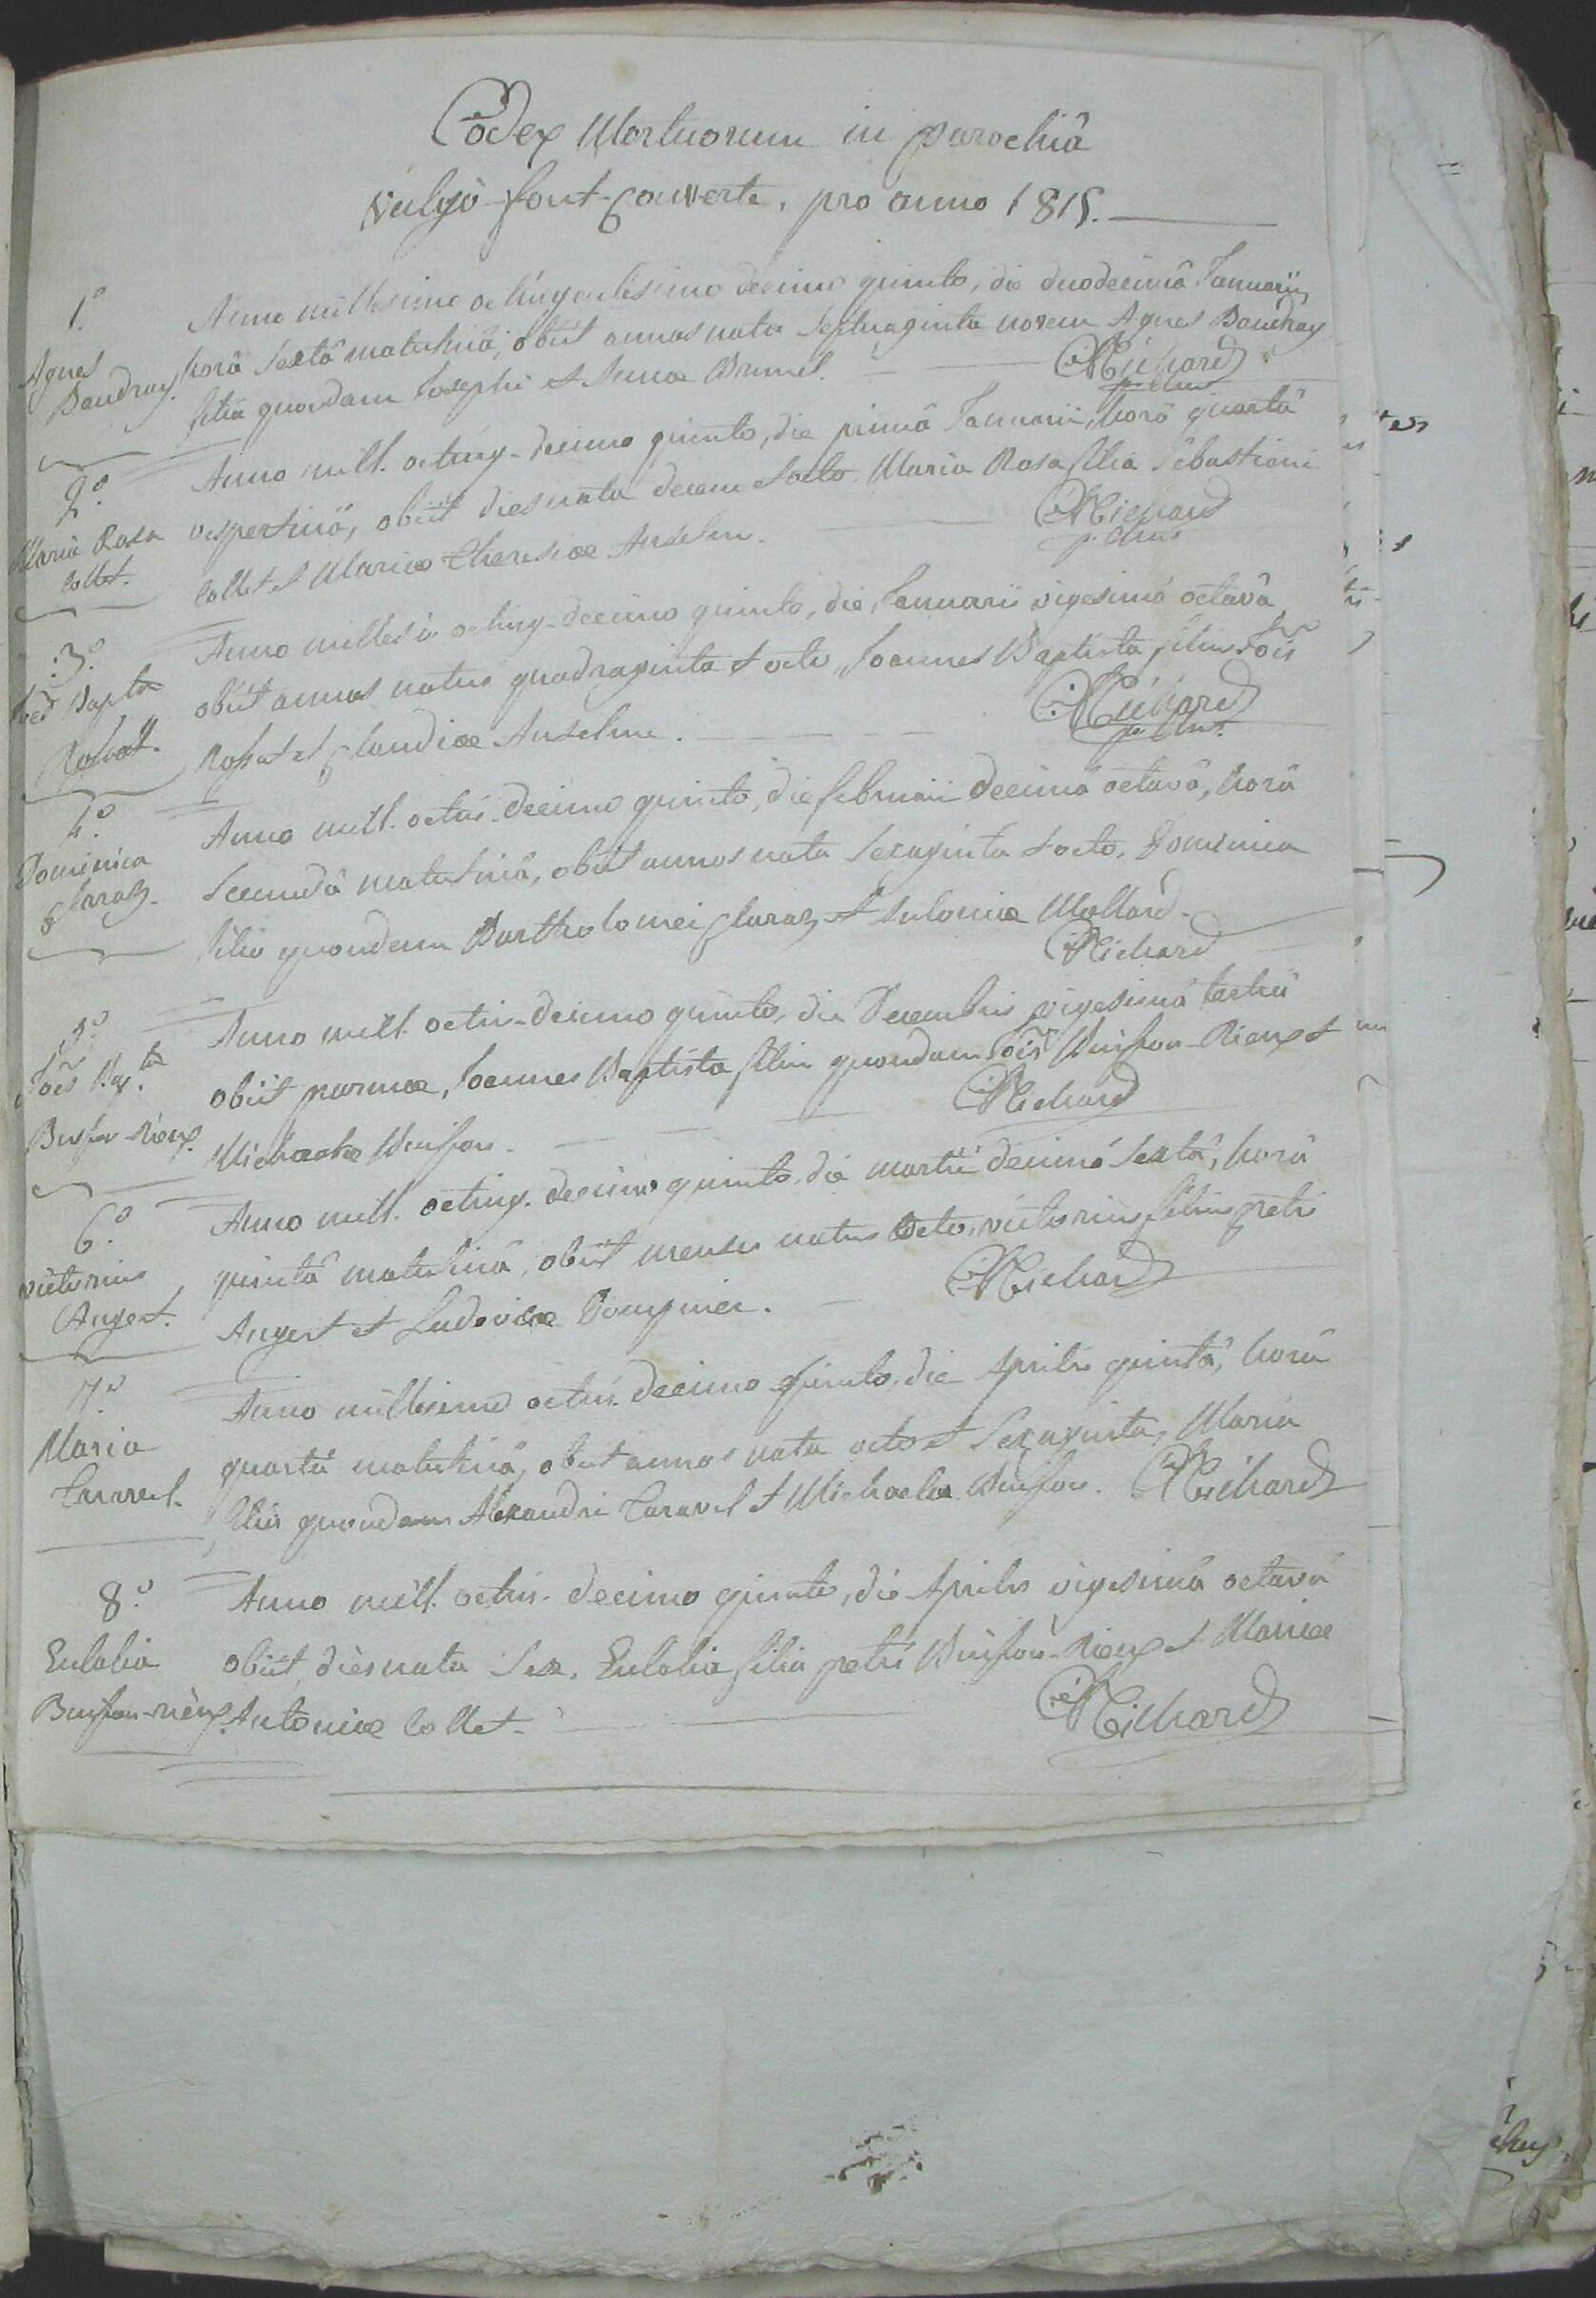 Codex Mortuorum in parochiâ
vulgò font-Couverte, pro anno 1815.
1.°
Agnes
Baudray.
Anno millesimo octingentesimo decimo quinto, die duodecimâ Januarii,
horâ sextâ matutinâ, obiit annos nata septuaginta novem Agnes Baudray
filia quondam Josephi et Annæ Brunel. Richard
2.°
Maria Rosa
Collet.
Anno mill. octing- decimo quinto, die primâ Januarii, horâ quartâ
vespertinâ, obiit dies nata decem et octo, Maria Rosa filia Sebastiani
Collet et Mariæ Theresiæ Anselme. Richard
3.°
Joês Bapta
Anno milles.o octing- decimo quinto, die Januarii vigesimâ octavâ
obiit annos natus quadraginta et octo, Joannes Baptista filius Jois
et Claudiæ Anselme. Richard
4.°
Dominica
Claraz.
Anno mill. octin- decimo quinto, die februarii decimâ octavâ, horâ
secundâ matutinâ, obiit annos nata sexaginta et octo, Dominica
filia quondam Bartholomei Claraz et Antoniæ Mollard. Richard
5.°
Joês Bap.ta
Buisson-Rieux.
Anno mill. octin- decimo quinto, die Decembris vigesimâ tertiâ
obiit parmæ, Joannes Baptista filius quondam Jois Buisson-Rieux et
Michaelæ Buisson. Richard
6.°
victorius
Anger​t.
Anno mill. octing. decimo quinto, die martii decimâ sextâ, horâ
quintâ matutinâ, obiit menses natus octo, victorius filius petri
Angert et Ludovicæ Dompnier. Richard
7.°
Maria
Taravel.
Anno millesimo octin. decimo quinto, die Aprilis quintâ, horâ
quartâ matutinâ, obiit annos nata octo et sexaginta, Maria
filia quondam Alexandri Taravel et Michaelæ Buisson. Richard
8.°
Eulalia
Buisson-rieux.
Anno mill. octin- decimo quinto, die Aprilis vigesimâ octavâ
obiit, dies nata sex, Eulalia filia petri Buisson-Rieux et Mariæ
Antoniæ Collet. Richard